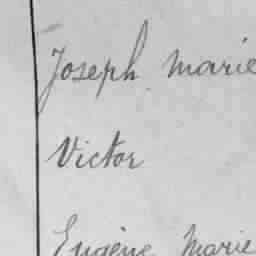 Joseph Marie
Victor
Eugène Marie